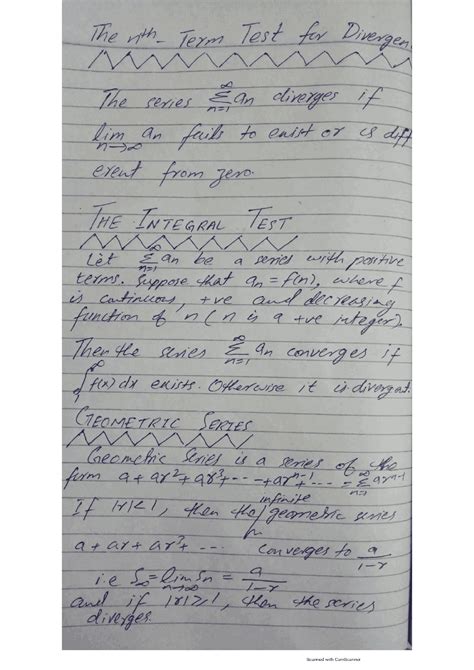 The nth- Term Test for Divergen
The series ∞Σn=1 an diverges if
lim n→∞ an fails to exist or is diff
erent from zero.
THE INTEGRAL TEST
Let ∞Σn=1 an be a series with positive
terms. Suppose that an = f(n), where f
is continuous, +ve and decreasing
function of n (n is a +ve integer).
Then the series ∞Σn=1 an converges if
∫∞ f(x) dx exists. Otherwise it is divergent.
GEOMETRIC SERIES
Geometric Series is a series of the
form a + ar² + ar³ + --- + arⁿ⁻¹ + --- = ∞Σn=1 arⁿ⁻¹
If |r| < 1, then the infinite geometric series
a + ar + ar² + --- converges to a/1-r
i.e S∞ = lim n→∞ Sn = a/1-r
and if |r| ≥ 1, then the series
diverges.
Scanned with CamScanner